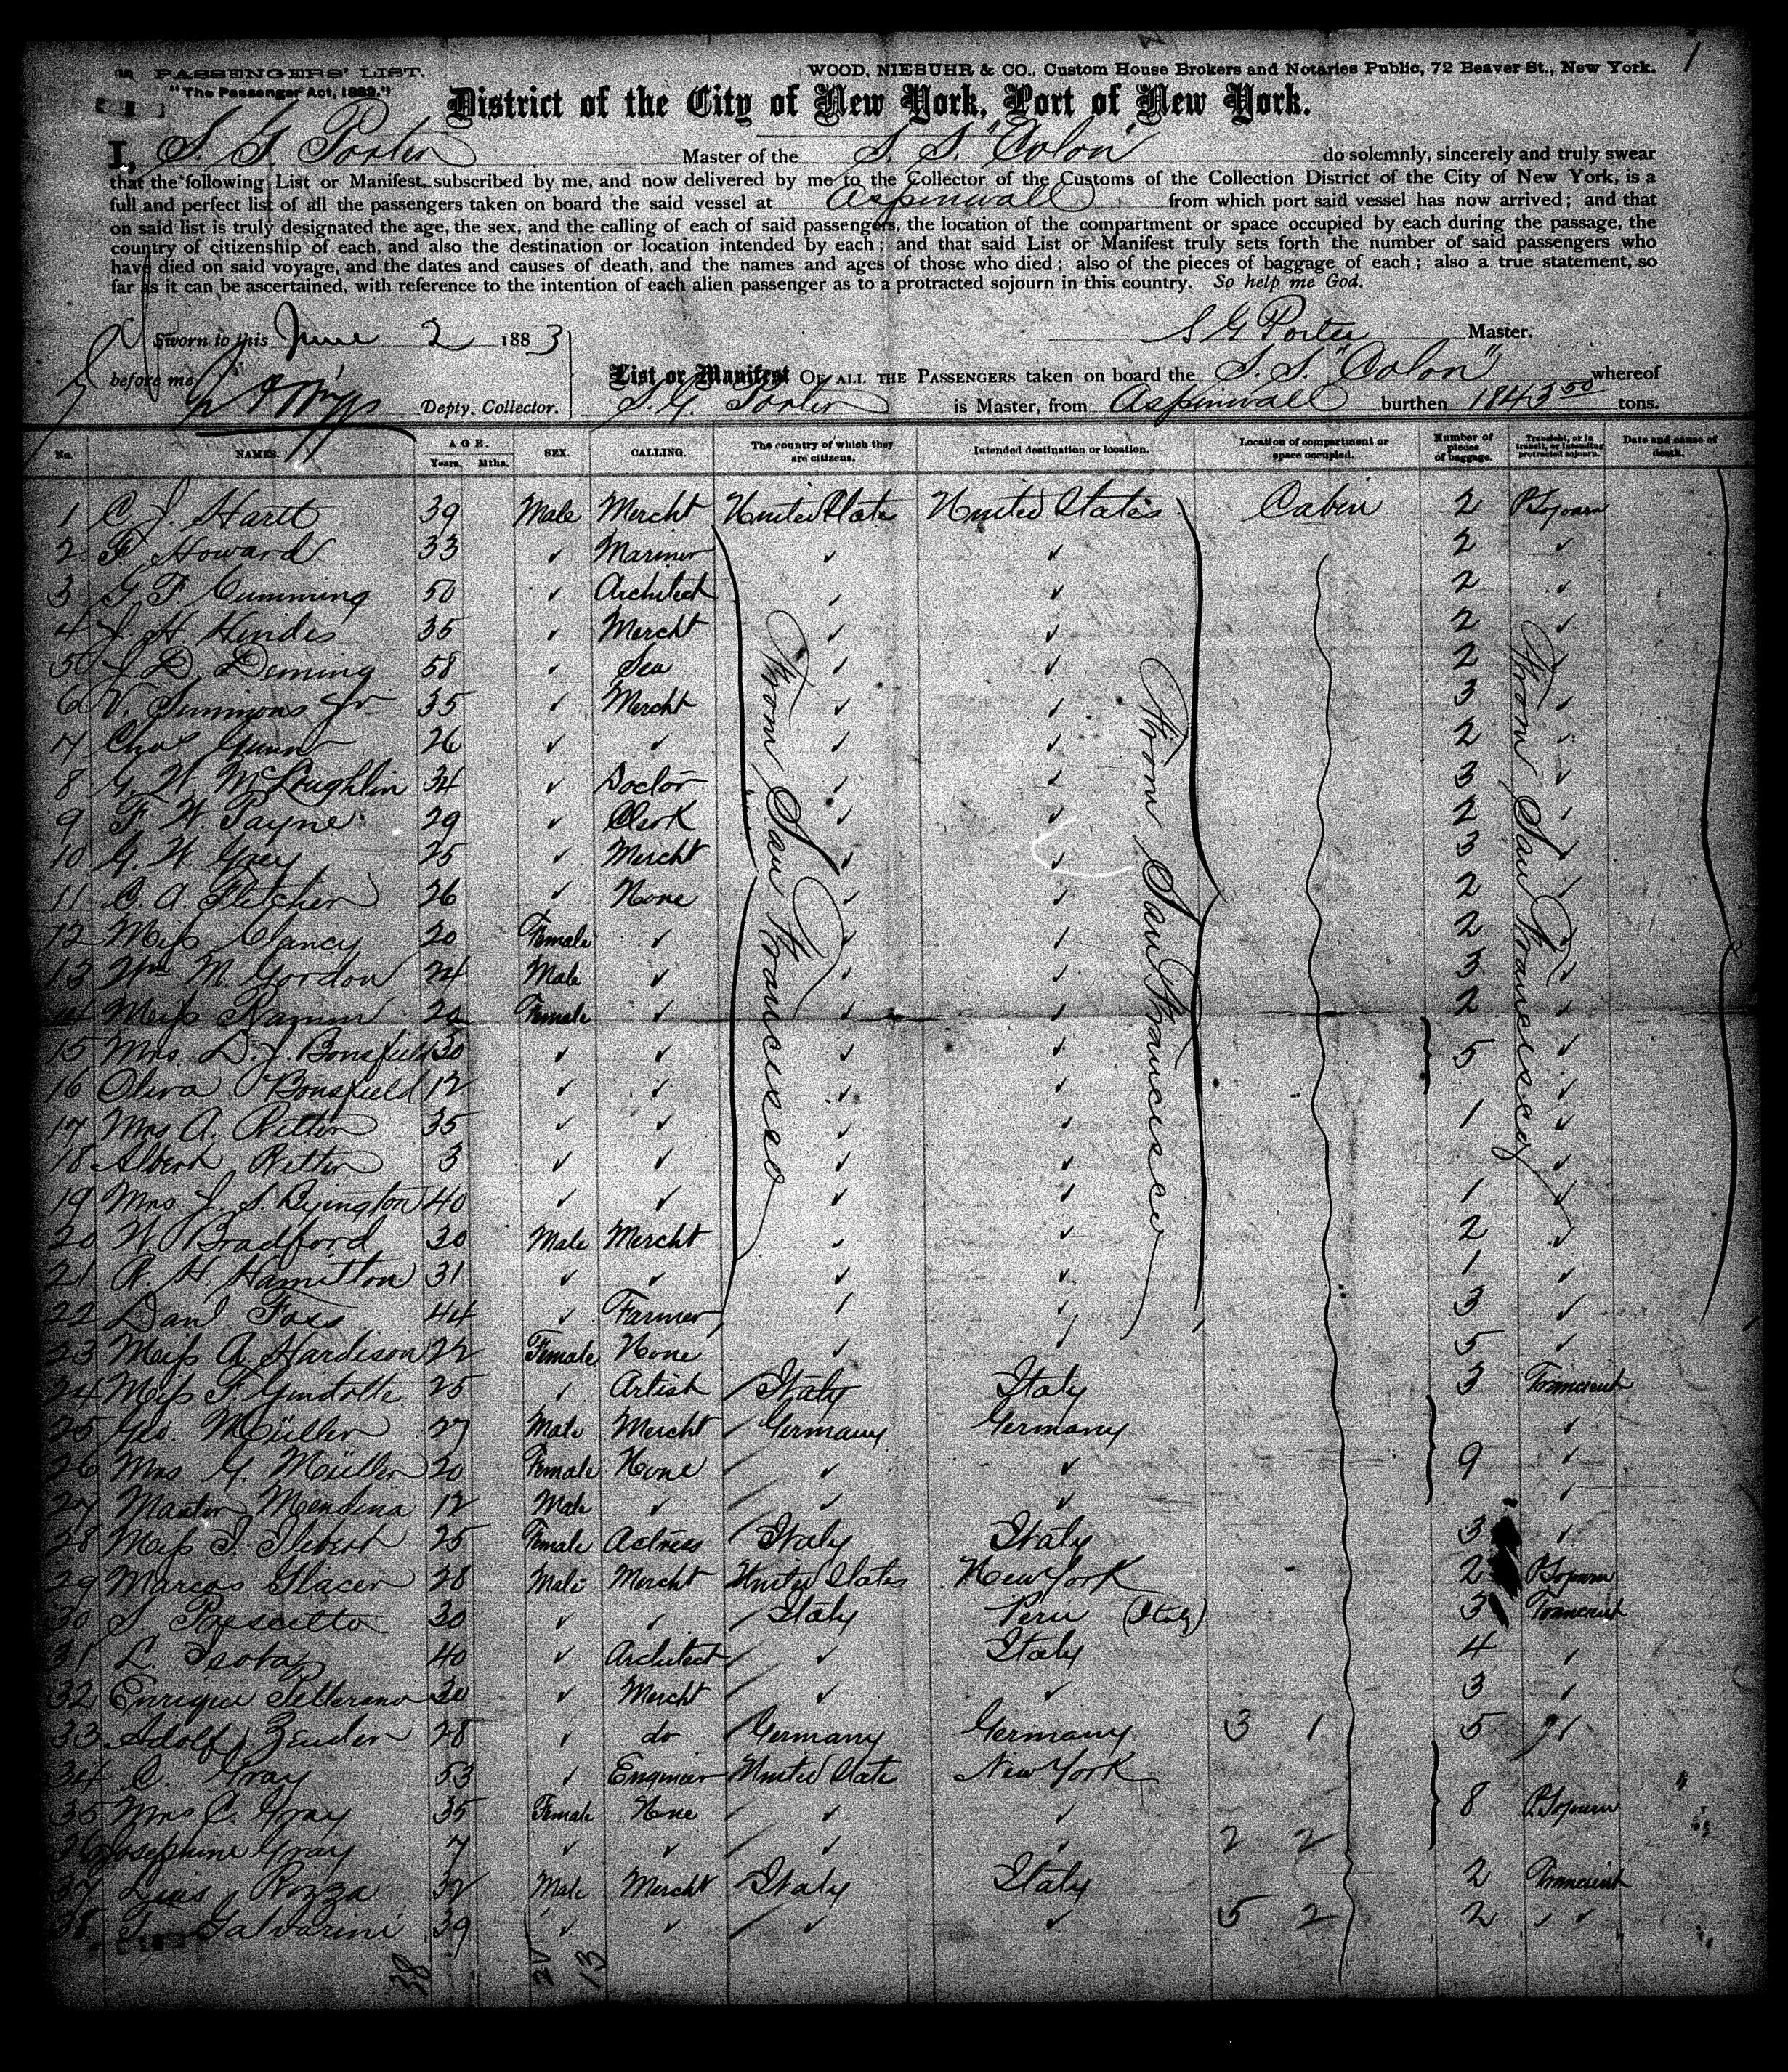 PASSENGERS' LIST.
"The Passenger Act, 1882."
WOOD, NIEBUHR & CO., Custom House Brokers and Notaries Public, 72 Beaver St., New York.
1
District of the City of New York, Port of New York.
I, S. G. Porter Master of the S. S. "Colon" do solemnly, sincerely and truly swear
that the following List or Manifest, subscribed by me, and now delivered by me to the Collector of the Customs of the Collection District of the City of New York, is a
full and perfect list of all the passengers taken on board the said vessel at Aspinwall from which port said vessel has now arrived; and that
on said list is truly designated the age, the sex, and the calling of each of said passengers, the location of the compartment or space occupied by each during the passage, the
country of citizenship of each, and also the destination or location intended by each; and that said List or Manifest truly sets forth the number of said passengers who
have died on said voyage, and the dates and causes of death, and the names and ages of those who died; also of the pieces of baggage of each; also a true statement, so
far as it can be ascertained, with reference to the intention of each alien passenger as to a protracted sojourn in this country. So help me God.
Sworn to this June 2 1883
S G Porter Master.
before me
Deputy. Collector.
List or Manifest OF ALL THE PASSENGERS taken on board the S. S. "Colon" whereof
S. G. Porter is Master, from Aspinwall burthen 1843 50 tons.
No. NAMES. AGE. Years. Mths. SEX. CALLING. The country of which they are citizens. Intended destination or location. Location of compartment or space occupied. Number of pieces of baggage. Transient, or in transit, or intending protracted sojourn. Date and cause of death.
1 C. J. Hartt 39 Male Mercht United State United States Cabin 2 P Sojourn
2 F. Howard 33 ✓ Mariner ✓ ✓ 2 ✓
3 G. F. Cumming 50 ✓ Architect ✓ ✓ 2 ✓
4 J. H. Hindes 35 ✓ Mercht ✓ ✓ 2 ✓
5 J. D. Deming 58 ✓ Sea ✓ ✓ 2 ✓
6 V. Simmons Jr 35 ✓ Mercht ✓ ✓ 3 ✓
7 Chas Gunn 26 ✓ ✓ ✓ ✓ 2 ✓
8 G. W. McLoughlin 34 ✓ Doctor ✓ ✓ 3 ✓
9 F. W. Payne 29 ✓ Clerk ✓ ✓ 2 ✓
10 G. W. Grey 25 ✓ Mercht ✓ ✓ 3 ✓
11 C. A. Fletcher 26 ✓ None ✓ ✓ 2 ✓
12 Miss Clancy 20 Female ✓ ✓ ✓ 2 ✓
13 Wm M. Gordon 24 Male ✓ ✓ ✓ 3 ✓
14 Miss Ramm 20 Female ✓ ✓ ✓ 2 ✓
15 Mrs. D. J. Bonsfield 30 ✓ ✓ ✓ ✓ 5 ✓
16 Oliva Bonsfield 12 ✓ ✓ ✓ ✓ ✓
17 Mrs A. Ritter 35 ✓ ✓ ✓ ✓ 1 ✓
18 Albert Ritter 3 ✓ ✓ ✓ ✓ ✓
19 Mrs J. S. 40 ✓ ✓ ✓ ✓ 1 ✓
20 W Bradford 30 Male Mercht ✓ ✓ 2 ✓
21 A. H. Hamilton 31 ✓ ✓ ✓ ✓ 1 ✓
22 Danl Foss 44 ✓ Farmer ✓ ✓ 3 ✓
23 Miss A. Hardison 22 Female None ✓ ✓ 5 ✓
From San Francisco
From San Francisco
From San Francisco
24 Miss F. 25 ✓ Artist Italy Italy 3 Trancient
25 Geo. Müller 27 Male Mercht Germany Germany ✓
26 Mrs G. Müller 20 Female None ✓ ✓ 9 ✓
27 Master Mendina 12 Male ✓ ✓ ✓ ✓
28 Miss 25 Female Actress Italy Italy 3 ✓
29 Marcos Glacer 28 Male Mercht United States New York 2 P Sojourn
30 S. Pescetto 30 ✓ ✓ Italy Peru (Italy) 3 Trancient
31 L. 40 ✓ Architect ✓ Italy 4 ✓
32 Enrique Pellerano 30 ✓ Mercht ✓ ✓ 3 ✓
33 Adolf Zender 28 ✓ do Germany Germany 3 1 5 ✓
34 C. Gray 53 ✓ Engineer United State New York
35 Mrs C. Gray 35 Female None ✓ ✓ 8 P. Sojourn
36 Josephine Gray 7 ✓ ✓ ✓ ✓ 2 2
37 Luis Rozza 32 Male Mercht Italy Italy 2 Trancient
38 Galvarini 39 ✓ ✓ ✓ ✓ 5 2 2 ✓ ✓
38 13